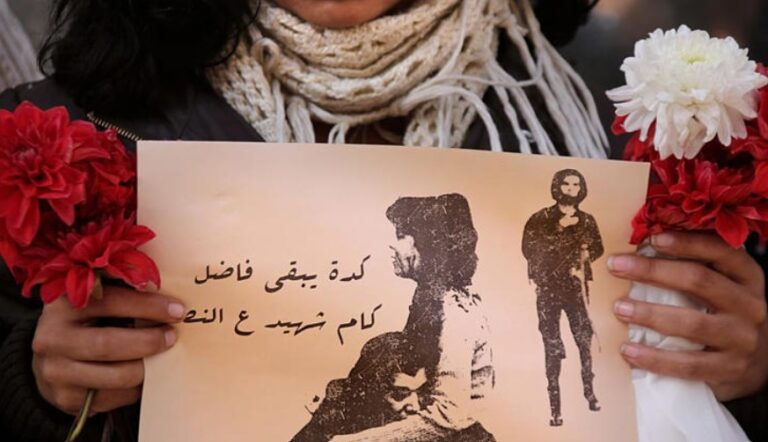 كدة يبقى فاضل
كام شهيد ع